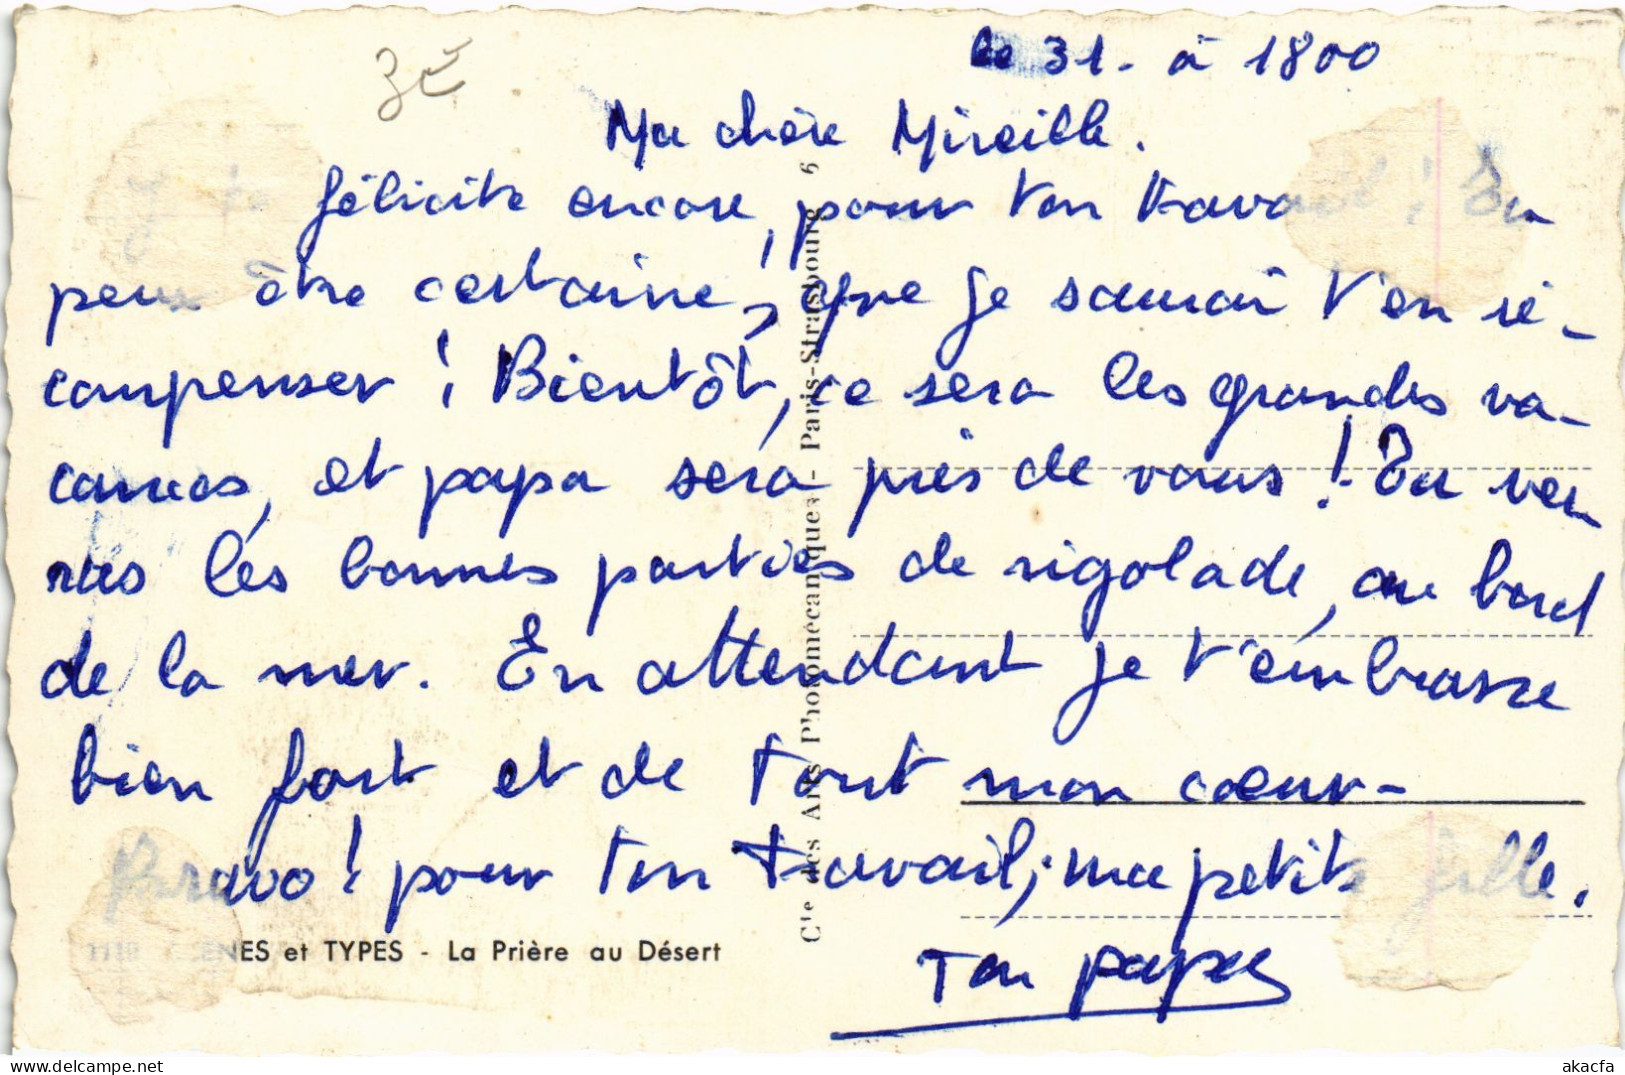 3€
le 31. à 1800
Ma chère Mireille.
Je te
félicite encore, pour ton travail ! Tu
peux être certaine, que je saurai t'en ré-
compenser ! Bientôt, ce sera les grandes va-
cances, et papa sera près de vous ! Tu ver
ras les bonnes parties de rigolade, au bord
de la mer. En attendant je t'embrasse
bien fort et de tout mon cœur-
Bravo ! pour ton travail, ma petite fille.
1110 SCENES et TYPES - La Prière au Désert
Ton papa
Cie des Arts Photomécaniques - Paris-Strasbourg 6
akacfa